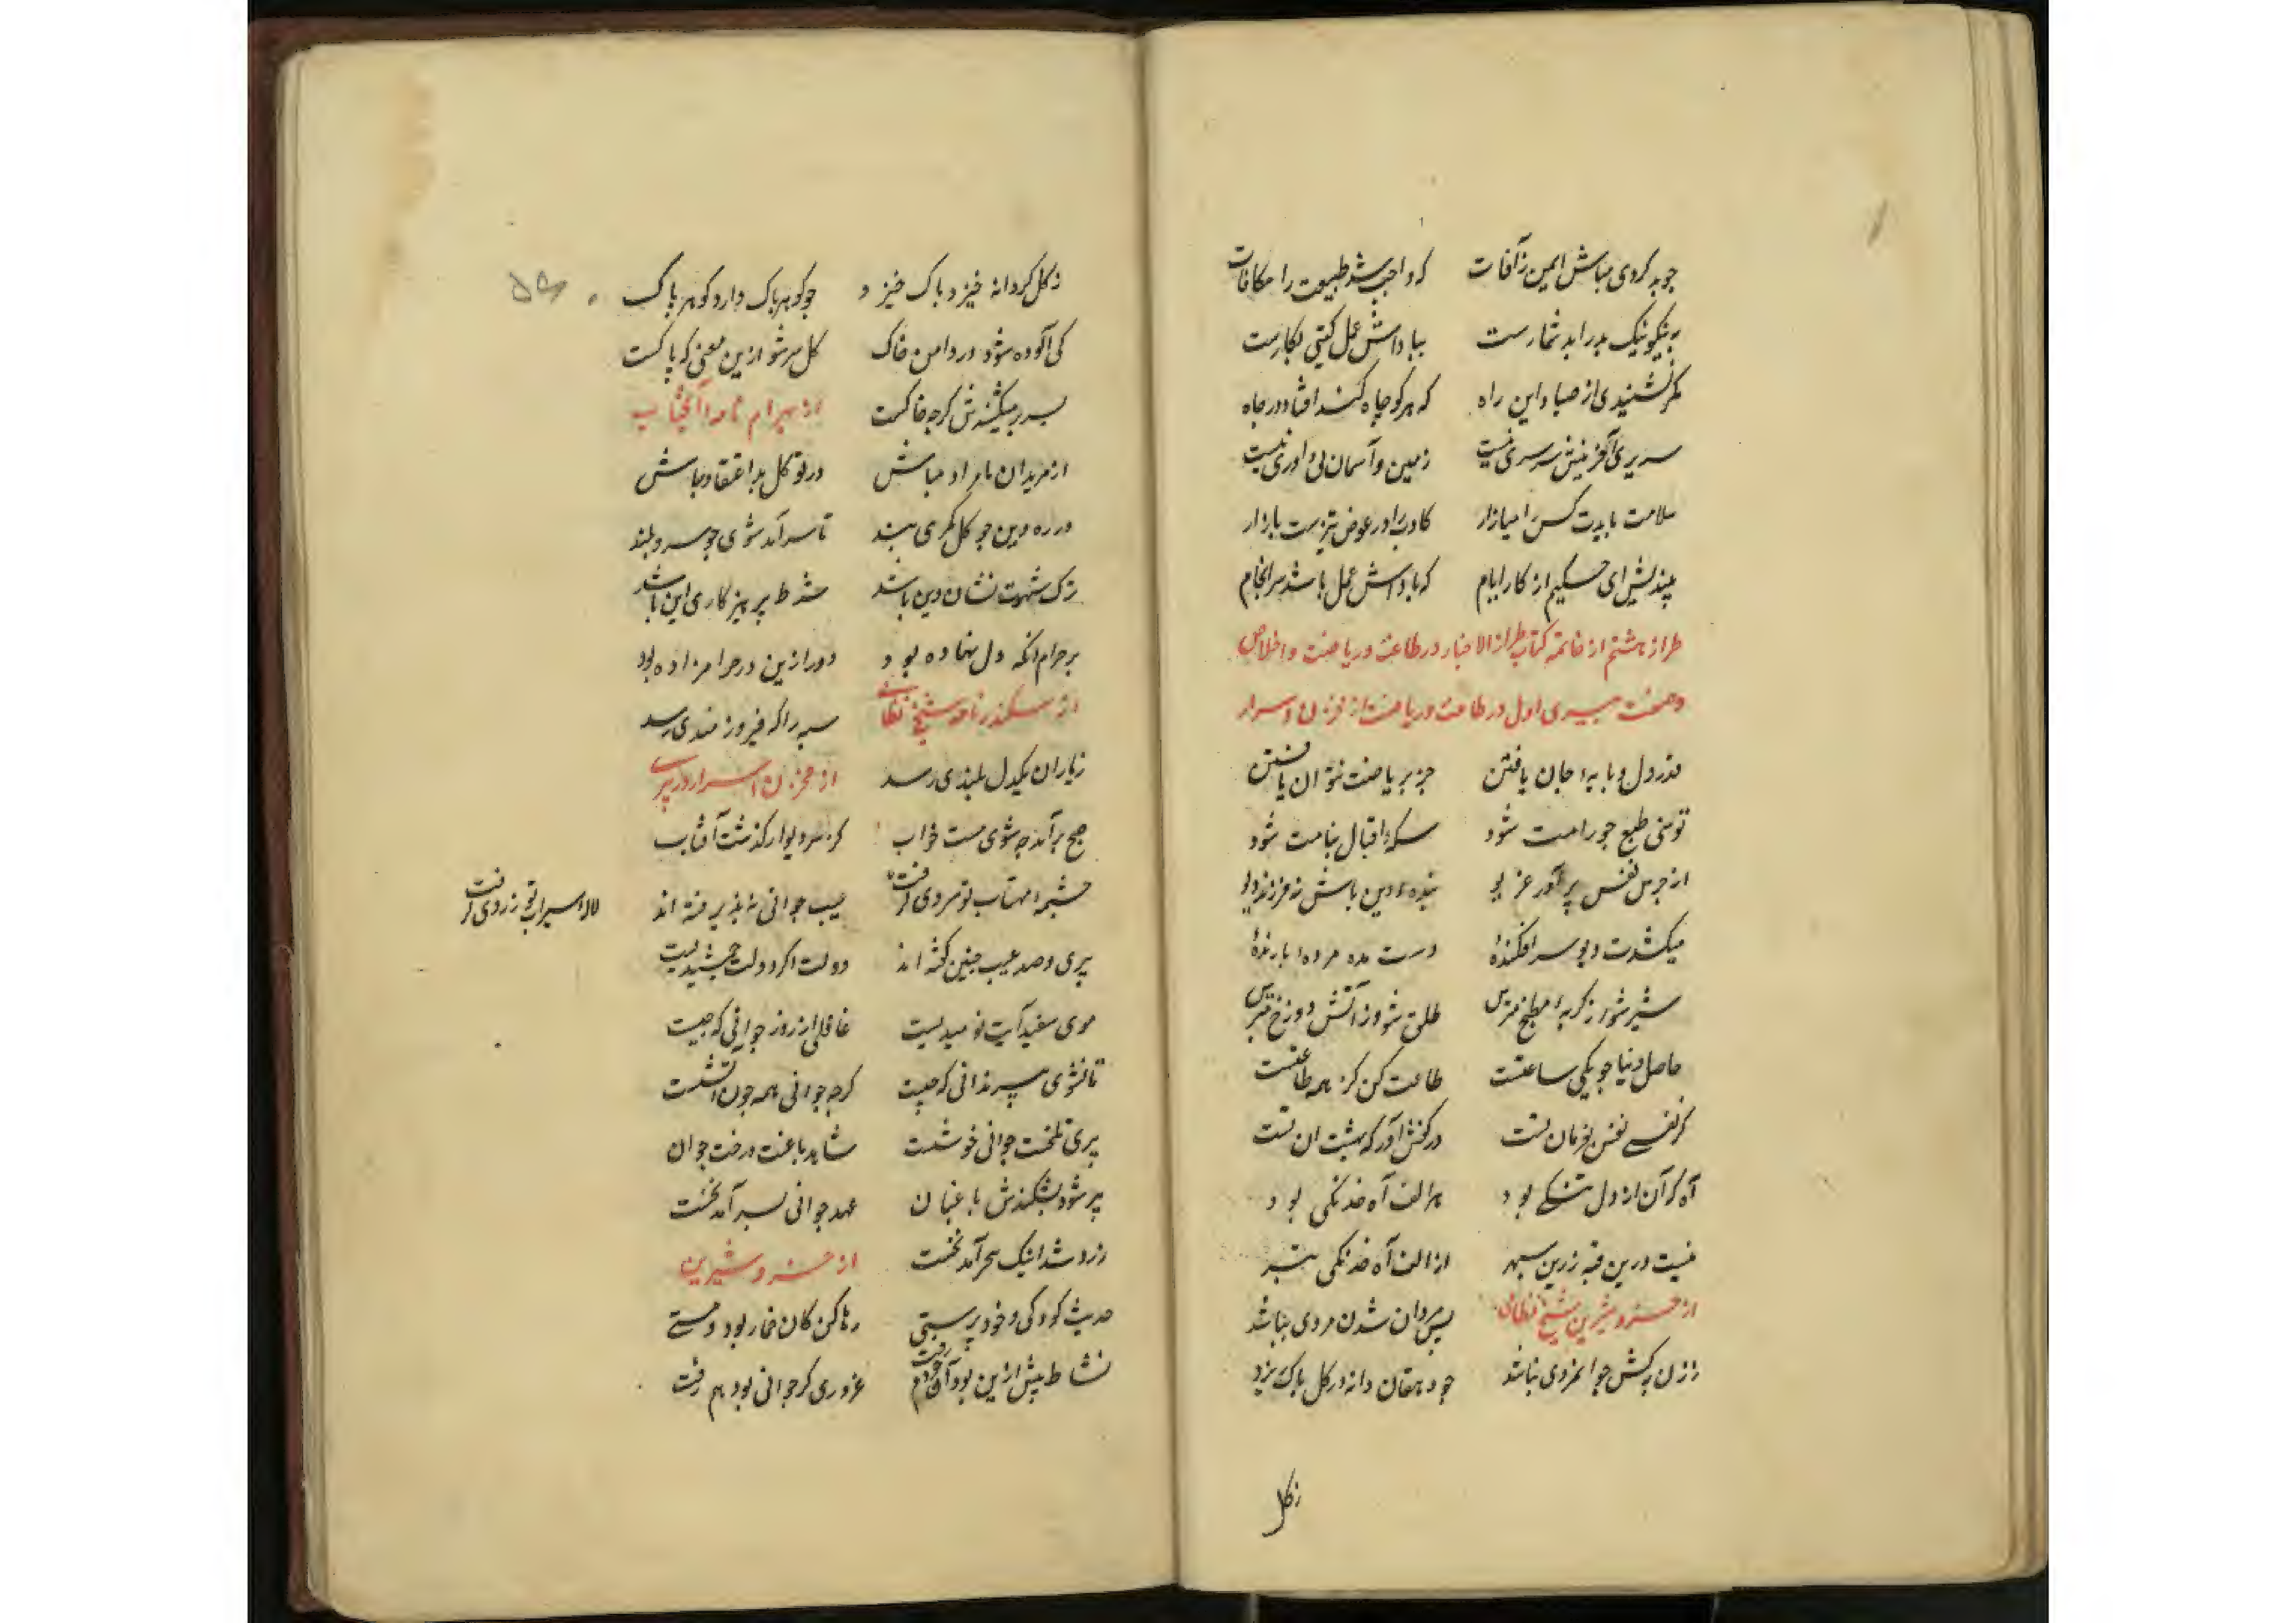 جو بد کردی مباش ایمن زآفات که واجب شد طبیعت را مکافات
به نیکو نیک بد را بد شمارست بپاداش عمل کیتی بکارست
مکر نشنیدی از صیاد این راه که هر کو چاه کند افتاد در چاه
سریر آفرینش سرسری نیست زمین و آسمان بی داوری نیست
سلامت بایدت کس را میازار کادب را در عوض تیزست بازار
بیندیش ای حکیم از کار ایام که پاداش عمل باشد سرانجام
طراز هشتم از خاتمه کتاب طراز الاخبار در طاعت و ریاضت و اخلاص
و صفت پیری اول در طاعت و ریاضت از مخزن اسرار
قدر دل و پایه جان یافتن جز بریاضت نتوان یافتن
توسنی طبع جو رامت شود سکه اقبال بنامت شود
از جرس نفس برآور غریو بنده دین باش نه مزدور دیو
میکشدت دیو سرافکنده دست مده مرده ا بار زنده
شیر شو از کربه مطبخ مترس طلق شو وز آتش دوزخ مترس
حاصل دنیا جو یکی ساعتست طاعت کن کز همه به طاعتست
کر نفسی نفس بفرمان تست در کفش آور که بهشت آن تست
آه کز آن از دل تنکی بود هر الف آه خدنکی بود
نیست درین قبه زرین سپهر از الف آه خدنکی بتر
از خسرو شیرین شیخ نظامی پس مردان شدن مردی نباشد
زن به کش جوانمردی نباشد جو دهقان دانه در کل پاک ریزد
زکل
زکل کر دانه خیزد پاک خیزد جو کوهر پاک دارد کوهر پاک
کی آلوده شود در دامن خاک کل سرشو ازین معنی که پاکست
بسر بر میکشندش کرچه خاکست از بهرام نامه آنجناب
از مریدان نامراد مباش در توکل بد اعتقاد مباش
در ره دین جو کل کمر می بند تا سرآمد شوی جو سرو بلند
ترک شهوت نشان دین باشد شرط پرهیزکاری این باشد
بر حرام آنکه دل نهاده بود دور ازین در حرامزاده بود
از سکندر نامه شیخ نظامی سپه را که فیروزمندی رسد
زیاران یکدل بلندی رسد از مخزن اسرار در پیری
صبح برآمد چه شوی مست خواب کز سر دیوار کذشت آفتاب
چشمه مهتاب تو سردی کرفت عیب جوانی نپذیرفته اند لاله سیراب تو زردی کرفت
پیری و صد عیب چنین کفته اند دولت اکر دولت جمشیدیست
موی سفید آیت نومیدیست غافلی از روز جوانی که چیست
تا نشوی پیر ندانی که چیست کرچه جوانی همه چون آتشست
پیری تلخست جوانی خوشست شاهد باغست درخت جوان
پیر شود بشکندش باغبان عهد جوانی بسر آمد نخست
روز شد اینک سحر آمد نخست از خسرو شیرین
حدیث کودکی و خود پرستی رها کن کان خمار بود و مستی
نشاط پیش ازین بود آن قدم رفت غروری کز جوانی بود هم رفت